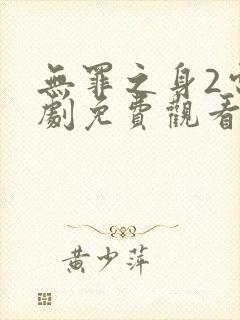 無罪之身2電
劇免費觀看
黃少萍